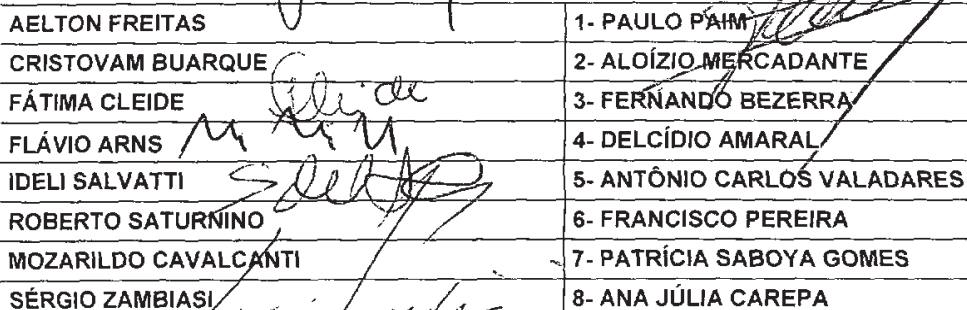 AELTON FREITAS 1- PAULO PAIM
CRISTOVAM BUARQUE 2- ALOÍZIO MERCADANTE
FÁTIMA CLEIDE Cleide 3- FERNANDO BEZERRA
FLÁVIO ARNS 4- DELCÍDIO AMARAL
IDELI SALVATTI 5- ANTÔNIO CARLOS VALADARES
ROBERTO SATURNINO 6- FRANCISCO PEREIRA
MOZARILDO CAVALCANTI 7- PATRÍCIA SABOYA GOMES
SÉRGIO ZAMBIASI 8- ANA JÚLIA CAREPA